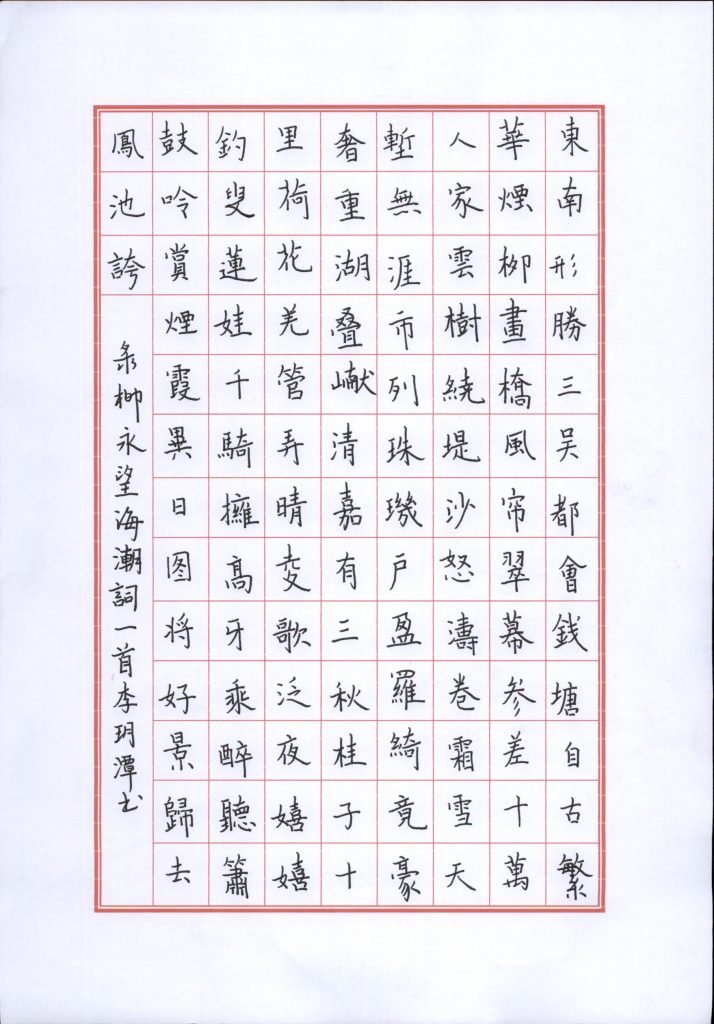 東南形勝三吴都會錢塘自古繁
華煙柳畫橋風帘翠幕参差十萬
人家雲樹繞堤沙怒濤卷霜雪天
塹無涯市列珠璣户盈羅綺竟豪
奢重湖叠巘清嘉有三秋桂子十
里荷花羌管弄晴菱歌泛夜嬉嬉
釣叟蓮娃千騎擁高牙乘醉聽簫
鼓吟賞煙霞異日图将好景歸去
鳳池誇
录柳永望海潮詞一首李玥潭书